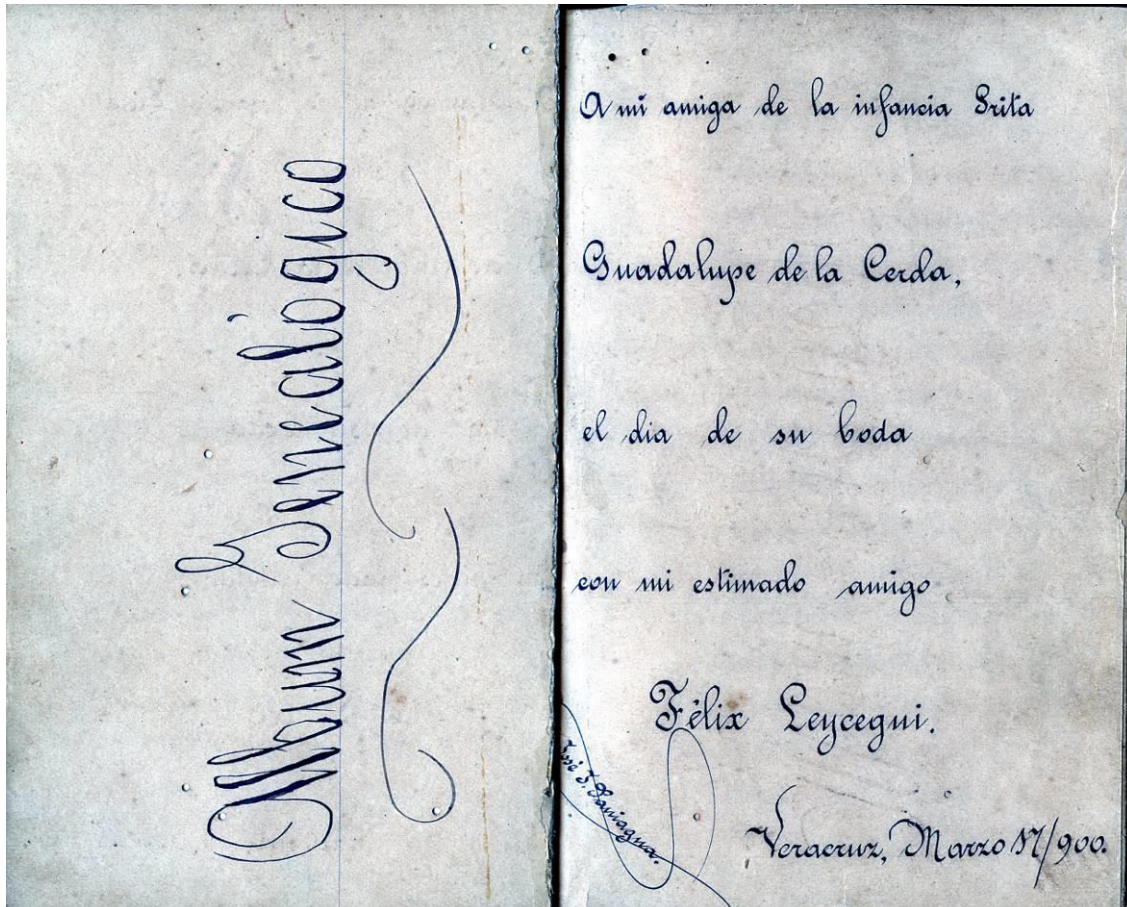 Album Genealógico
A mi amiga de la infancia Srita
Guadalupe de la Cerda,
el dia de su boda
con mi estimado amigo
Félix Leycegui.
José J. Paniagua.
Veracruz, Marzo 17/900.